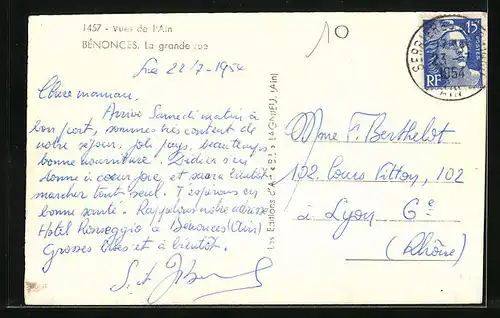 1457 - Vues de l'Ain
BÉNONCES. La grande rue
10
Le 22/7-1954
Chère maman,
Arrivé Samedi matin à
bon port, sommes très content de
notre séjour, joli pays, beau temps,
bonne nourriture. Didier s'en
donne à cœur joie et saura bientôt
marcher tout seul. T'espérons en
bonne santé. Rappelons notre adresse
Hotel à Bénonces (Ain)
Grosses Bises et à bientôt.
Les Éditions d'Art LAGNIEU, (Ain)
15
RF
23
1954
AIN
Mme F. Berthelot
102. Cours Vitton, 102
à Lyon 6e
(Rhône)